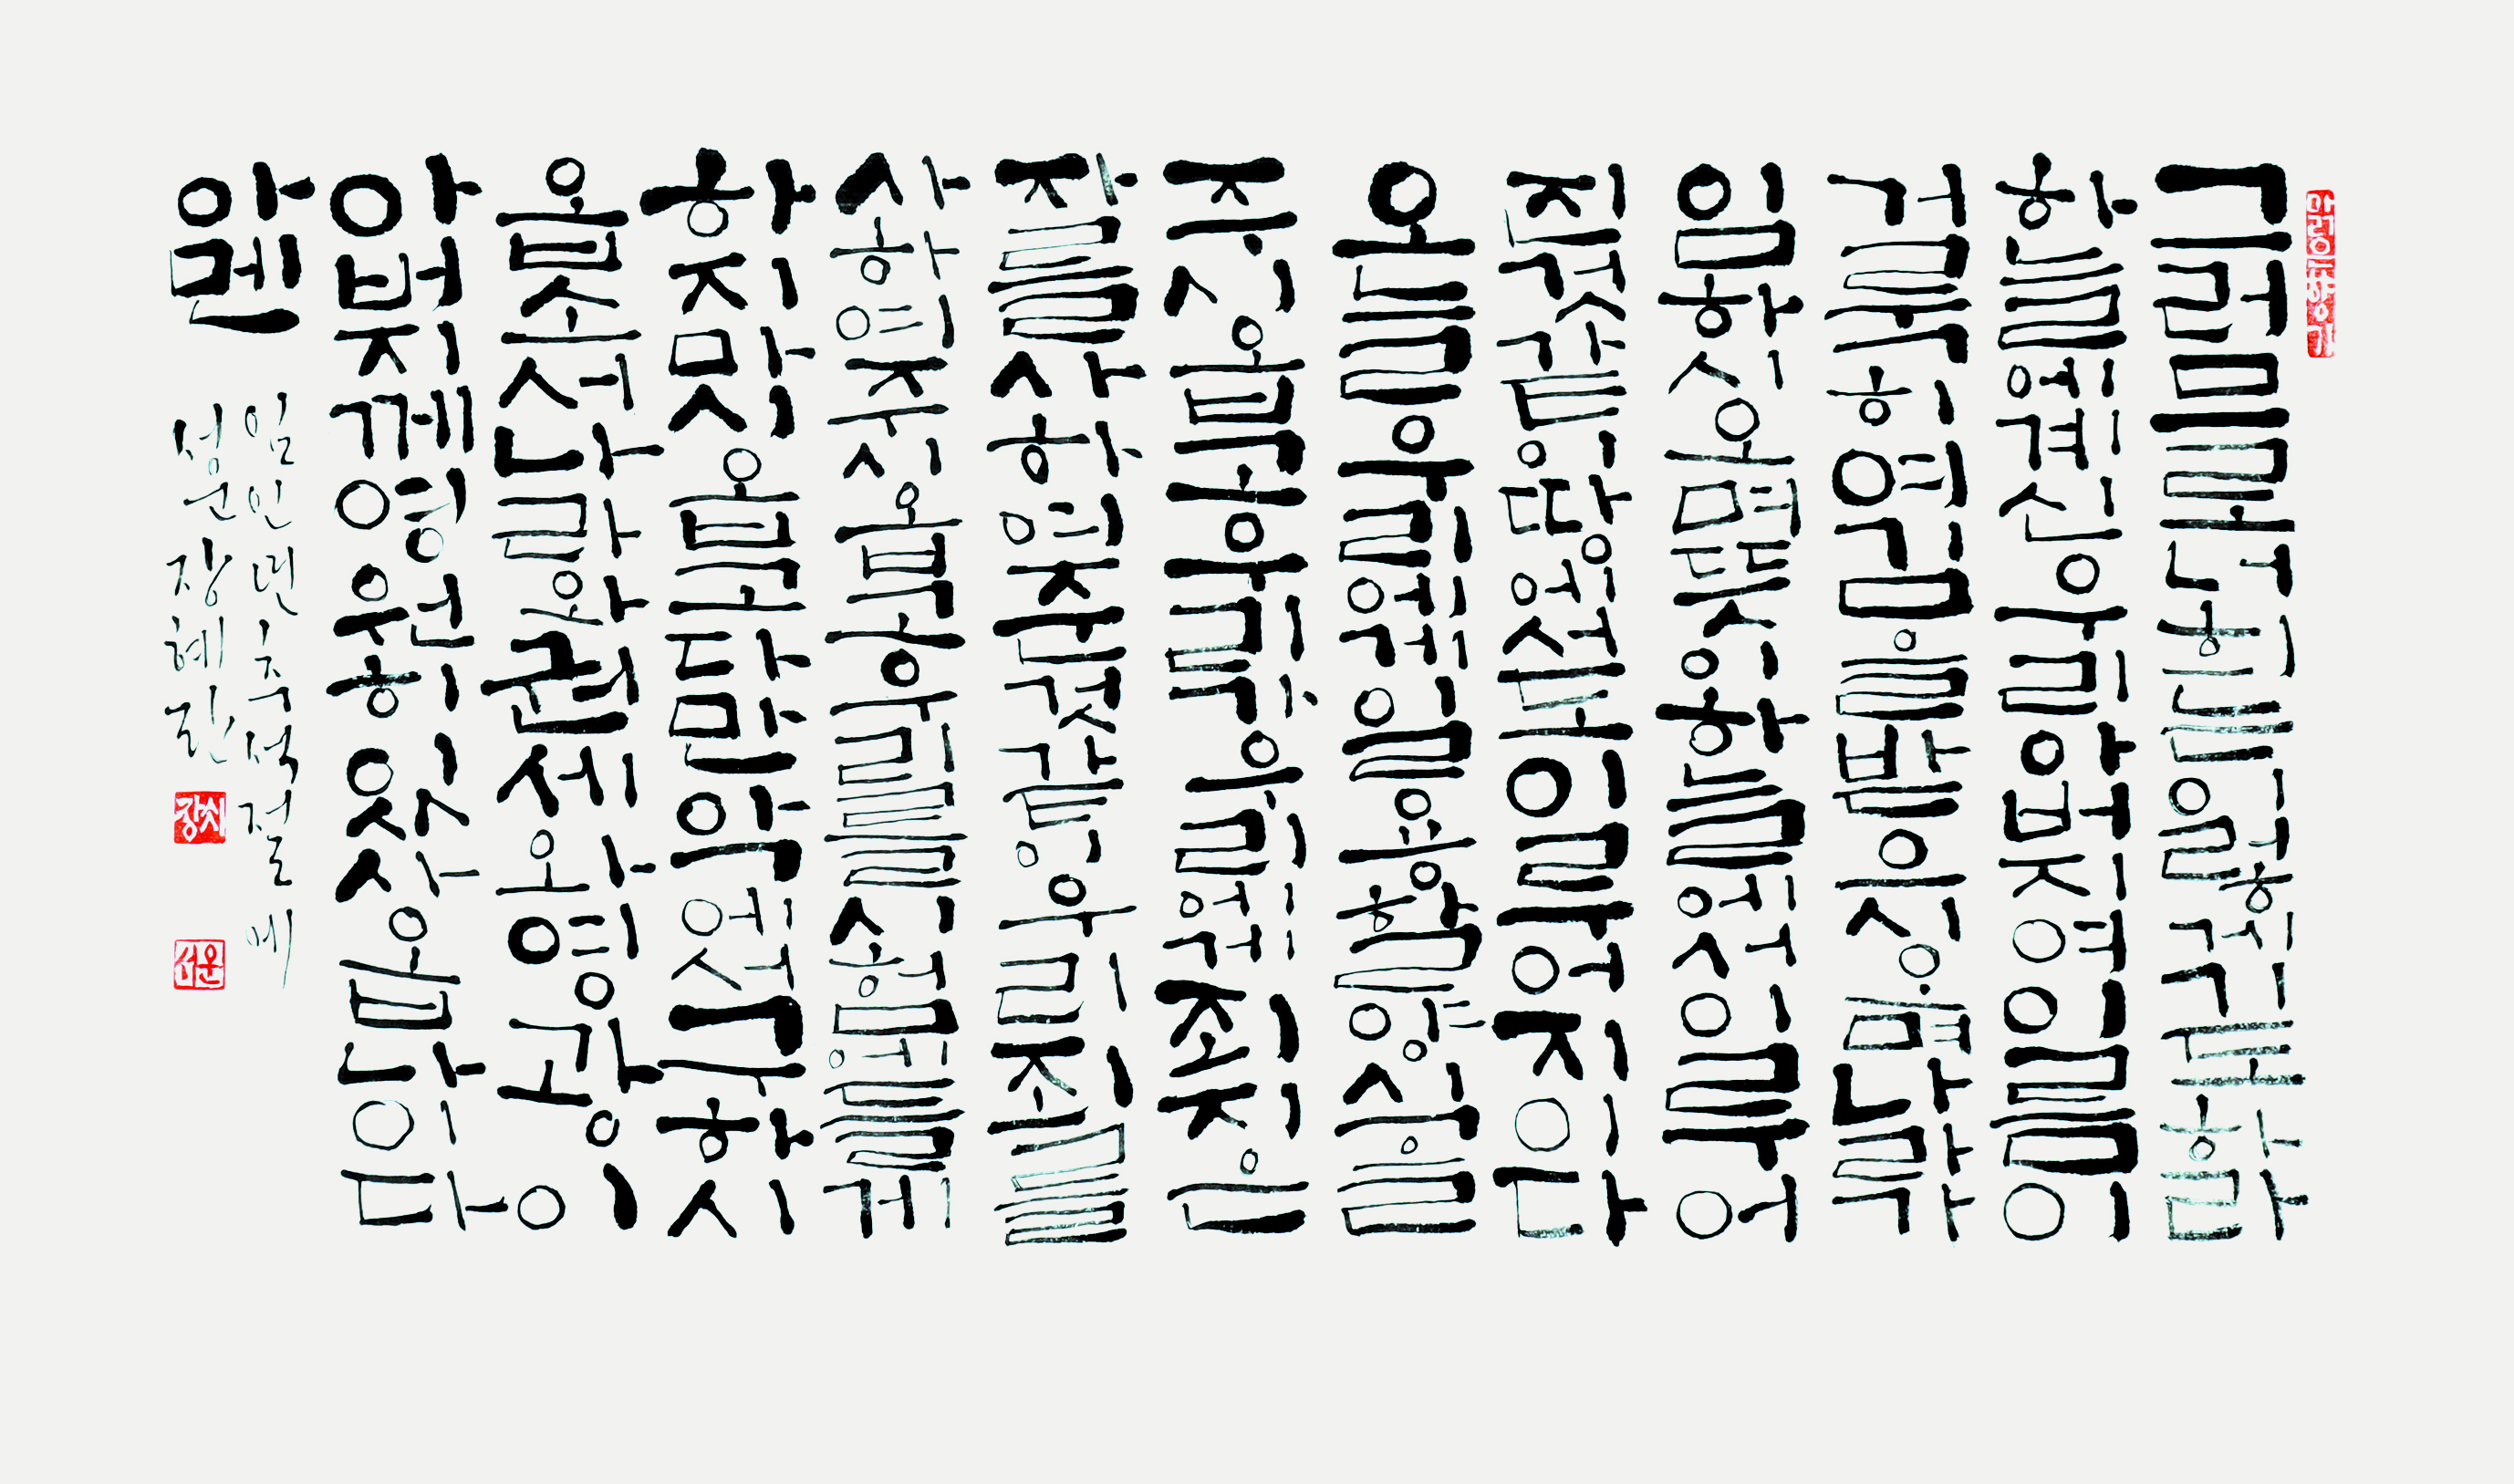 그러므로너희는이렇게기도하라
하늘에계신우리아버지여이름이
거룩히여김을받으시오며나라가
임하시오며뜻이하늘에서이루어
진것같이땅에서도이루어지이다
오늘우리에게일용할양식을
주시옵고우리가우리에게죄지은
자를사하여준것같이우리죄를
사하여주시옵고우리를시험에들게
하지마시옵고다만악에서구하시
옵소서나라와권세와영광이
아버지께영원히있사옵나이다
아멘
임인년추석절에
서운장혜란
서운